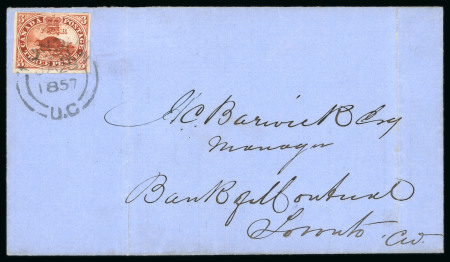 3 CANADA POSTAGE 3
THREE PENCE
1857
U.C
Barwick Esq
Manager
Bank of Montreal
Toronto C.W.